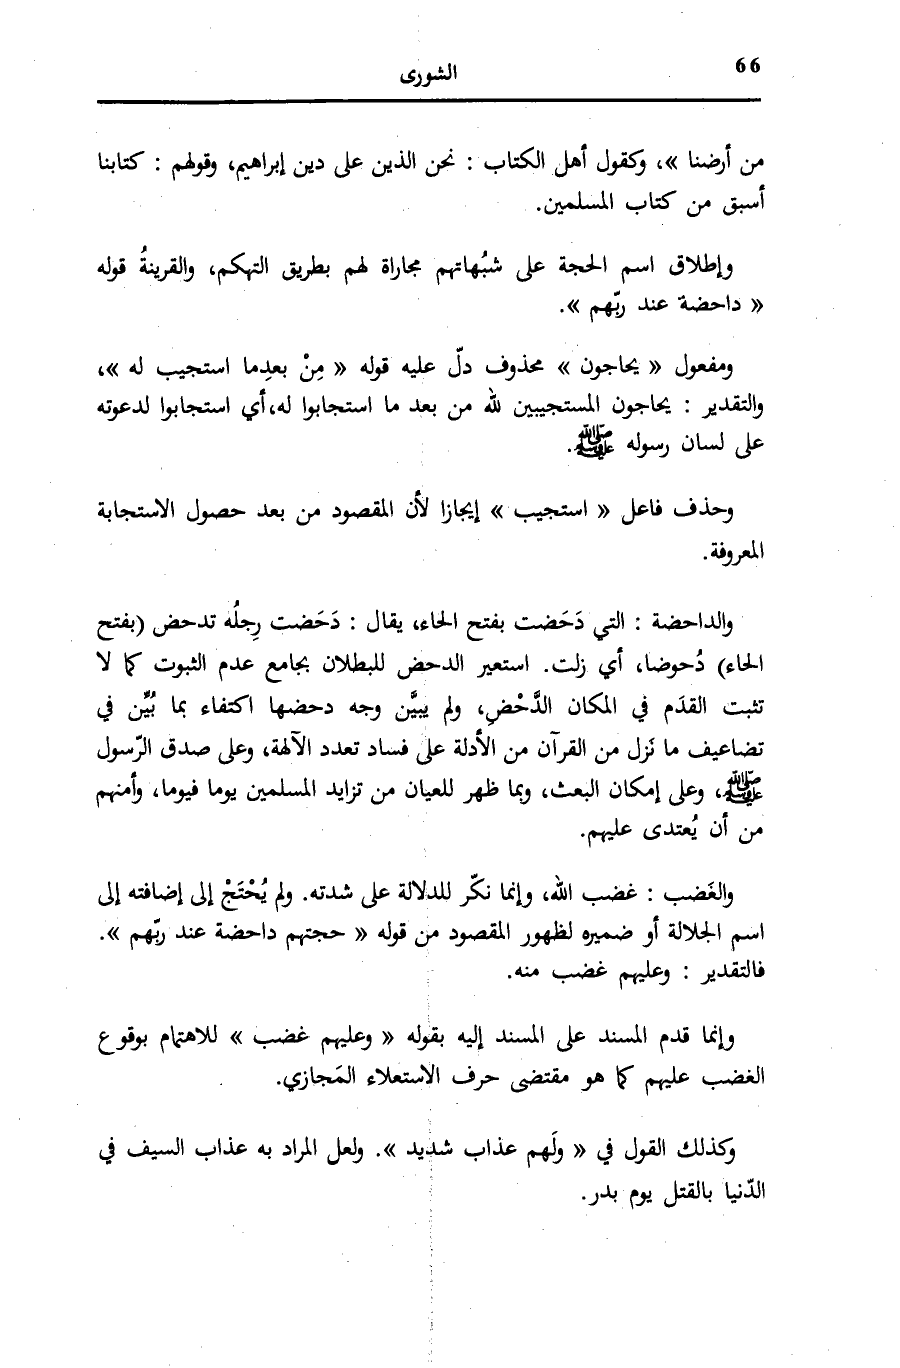 66
الشورى
من أرضنا »، وكقول أهل الكتاب : نحن الذين على دين إبراهيم، وقولهم : كتابنا
أسبق من كتاب المسلمين.
وإطلاق اسم الحجة على شبُهاتهم مجاراة لهم بطريق التهكم، والقرينةُ قوله
« داحضة عند ربّهم ».
ومفعول « يحاجون » محذوف دلّ عليه قوله « مِنْ بعدِما استجيب له »،
والتقدير : يحاجون المستجيبين لله من بعد ما استجابوا له،أي استجابوا لدعوته
على لسان رسوله ﷺ.
وحذف فاعل « استجيب » إيجازا لأن المقصود من بعد حصول الاستجابة
المعروفة.
والداحضة : التي دَحَضت بفتح الحاء، يقال : دَحَضت رِجلُه تدحض (بفتح
الحاء) دُحوضا، أي زلت. استعير الدحض للبطلان بجامع عدم الثبوت كما لا
تثبت القدَم في المكان الدَّحْضِ، ولم يبيَّن وجه دحضها اكتفاء بما بُيِّن في
تضاعيف ما نَزل من القرآن من الأدلة على فساد تعدد الآلهة، وعلى صدق الرّسول
ﷺ، وعلى إمكان البعث، وبما ظهر للعيان من تزايد المسلمين يوما فيوما، وأمنهم
من أن يُعتدى عليهم.
والغَضب : غضب الله، وإنما نكّر للدلالة على شدته. ولم يُحْتَجْ إلى إضافته إلى
اسم الجلالة أو ضميره لظهور المقصود من قوله « حجتهم داحضة عند ربّهم ».
فالتقدير : وعليهم غضب منه.
وإنما قدم المسند على المسند إليه بقوله « وعليهم غضب » للاهتمام بوقوع
الغضب عليهم كما هو مقتضى حرف الاستعلاء المَجازي.
وكذلك القول في « ولَهم عذاب شديد ». ولعل المراد به عذاب السيف في
الدّنيا بالقتل يوم بدر.